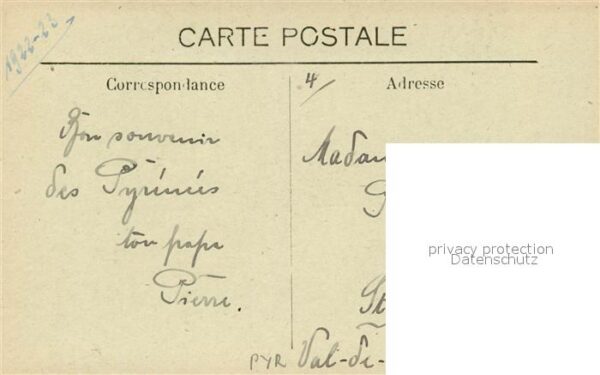 1922-22
CARTE POSTALE
Correspondance
4/
Adresse
Bon souvenir
des Pyrénées
ton papa
Pierre.
Madam
St
PYR Val-de-
privacy protection
Datenschutz